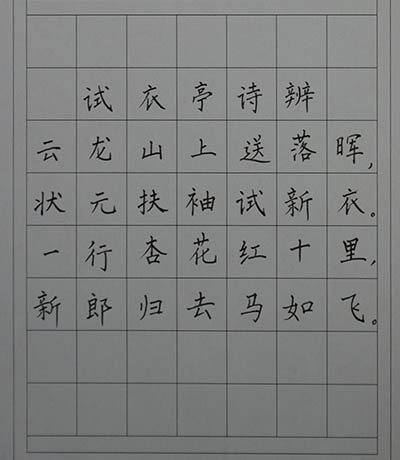 试衣亭诗辨
云龙山上送落晖，
状元扶袖试新衣。
一行杏花红十里，
新郎归去马如飞。